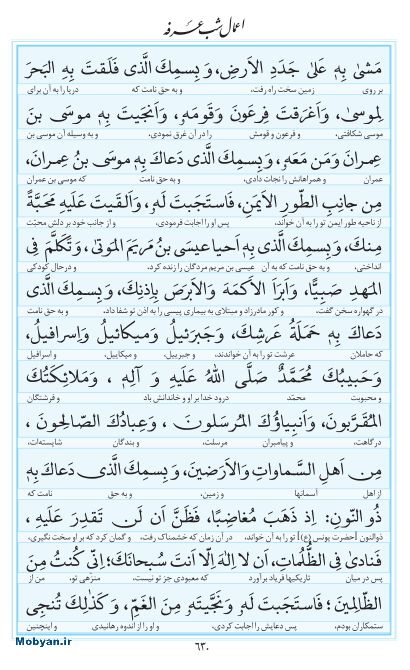 اعمال شب عرفه
مَشیٰ بِهِ عَلیٰ جَدَدِ الاَرضِ، وَ بِسمِكَ الَّذی فَلَقتَ بِهِ البَحرَ
بر روی زمین سخت راه رفت، و به حق نامت که دریا را به آن برای
لِموسیٰ، وَ اَغرَقتَ فِرعَونَ وَ قَومَهُ، وَ اَنجَیتَ بِهِ موسَی بنَ
موسی شکافتی، و فرعون و قومش را در آن غرق نمودی، و به وسیله آن موسی بن
عِمرانَ وَ مَن مَعَهُ، وَ بِسمِكَ الَّذی دَعاكَ بِهِ موسَی بنُ عِمرانَ،
عمران و همراهانش را نجات دادی، و به حق نامت که موسی بن عمران
مِن جانِبِ الطّورِ الاَیمَنِ، فَاستَجَبتَ لَهُ، وَ اَلقَیتَ عَلَیهِ مَحَبَّةً
از ناحیه طور ایمن تو را به آن خواند، پس او را اجابت فرمودی، و از جانب خود بر دلش محبّت
مِنكَ، وَ بِسمِكَ الَّذی بِهِ اَحیا عیسَی بنُ مَریَمَ المَوتیٰ، وَ تَكَلَّمَ فِی
انداختی، و به حق نامت که به آن عیسی بن مریم مردگان را زنده کرد، و در حال کودکی
المَهدِ صَبِیًّا، وَ اَبرَاَ الاَكمَهَ وَ الاَبرَصَ بِاِذنِكَ، وَ بِسمِكَ الَّذی
در گهواره سخن گفت، و کور مادرزاد و مبتلای به بیماری پیسی را به اذن تو شفا داد، و به حق نامت
دَعاكَ بِهِ حَمَلَةُ عَرشِكَ، وَ جَبرَئیلُ وَ میكائیلُ وَ اِسرافیلُ،
که حاملان عرشت تو را به آن خواندند، و جبرییل، و میکاییل، و اسرافیل
وَ حَبیبُكَ مُحَمَّدٌ صَلَّی اللهُ عَلَیهِ وَ آلِهِ، وَ مَلائِكَتُكَ
و محبوبت محمّد درود خدا بر او و خاندانش باد و فرشتگان
المُقَرَّبونَ، وَ اَنبِیاؤُكَ المُرسَلونَ، وَ عِبادُكَ الصّالِحونَ،
درگاهت، و پیامبران مرسلت، و بندگان شایسته‌ات،
مِن اَهلِ السَّماواتِ وَ الاَرَضینَ، وَ بِسمِكَ الَّذی دَعاكَ بِهِ
از اهل آسمانها و زمین، و به حق نامت که
ذُو النّونِ: اِذ ذَهَبَ مُغاضِبًا، فَظَنَّ اَن لَن تَقدِرَ عَلَیهِ،
ذوالنون (حضرت یونس ع) تو را به آن خواند، در آن زمان که خشمناک رفت، و گمان کرد که بر او سخت نگیری،
فَنادیٰ فِی الظُّلُماتِ، اَن لا اِلهَ اِلّا اَنتَ سُبحانَكَ؛ اِنّی كُنتُ مِنَ
پس در میان تاریکیها فریاد برآورد که معبودی جز تو نیست، منزهی تو، من از
الظّالِمینَ؛ فَاستَجَبتَ لَهُ وَ نَجَّیتَهُ مِنَ الغَمِّ، وَ كَذٰلِكَ تُنجِی
ستمکاران بودم، پس دعایش را اجابت کردی، و او را از اندوه رهانیدی و اینچنین
Mobyan.ir
۶۳۰